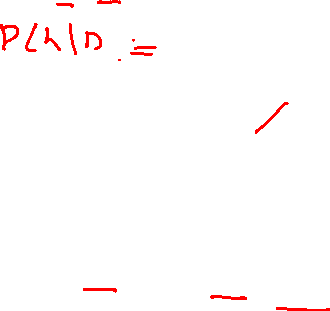 P(h|D =